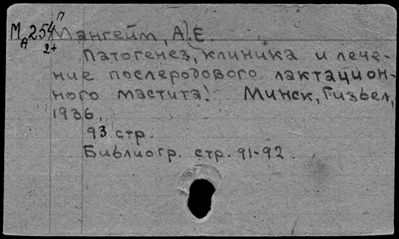 М 254 П
А 2+
Мангейм, А. Е.
Патогенез, клиника и лече-
ние послеродового лактацион-
ного мастита! Минск, Гизбел,
1936.
93 стр.
Библиогр. стр. 91-92.